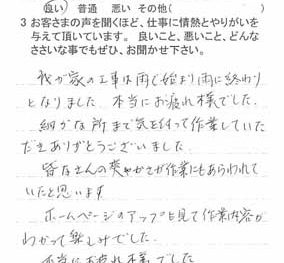 良い 普通 悪い その他( )
3 お客さまの声を聞くほど、仕事に情熱とやりがいを
与えて頂いています。 良いこと、悪いこと、どんな
ささいな事でもぜひ、お聞かせ下さい。
我が家の工事は雨で始まり雨に終わり
となりました 本当にお疲れ様でした.
細かな所まで気を使って作業していた
だきありがとうございました
皆さんの爽やかさが作業にもあらわれて
いたと思います
ホームページのアップも見て作業内容が
わかって楽しみでした.
本当にお疲れ様でした